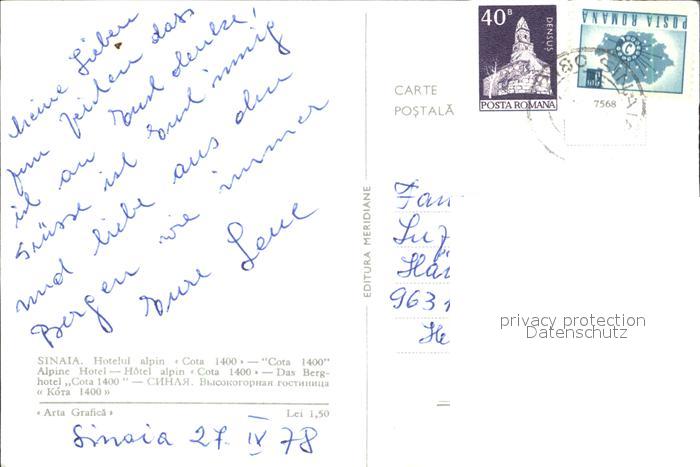 Meine Lieben
zum Zeichen das
ich an Euch denke!
Grüsse ich Euch innig
und liebe aus den
Bergen wie immer
Eure Lene
SINAIA. Hotelul alpin « Cota 1400 » — "Cota 1400"
Alpine Hotel — Hôtel alpin « Cota 1400 » — Das Berg-
hotel „Cota 1400" — СИНАЯ. Высокогорная гостиница
« Кота 1400 »
« Arta Grafică » Lei 1,50
Sinaia 27. IV 78
EDITURA MERIDIANE
CARTE
POȘTALĂ
40 B
DENSUȘ
POSTA ROMANA
POSTA ROMANA
7568
963
privacy protection
Datenschutz